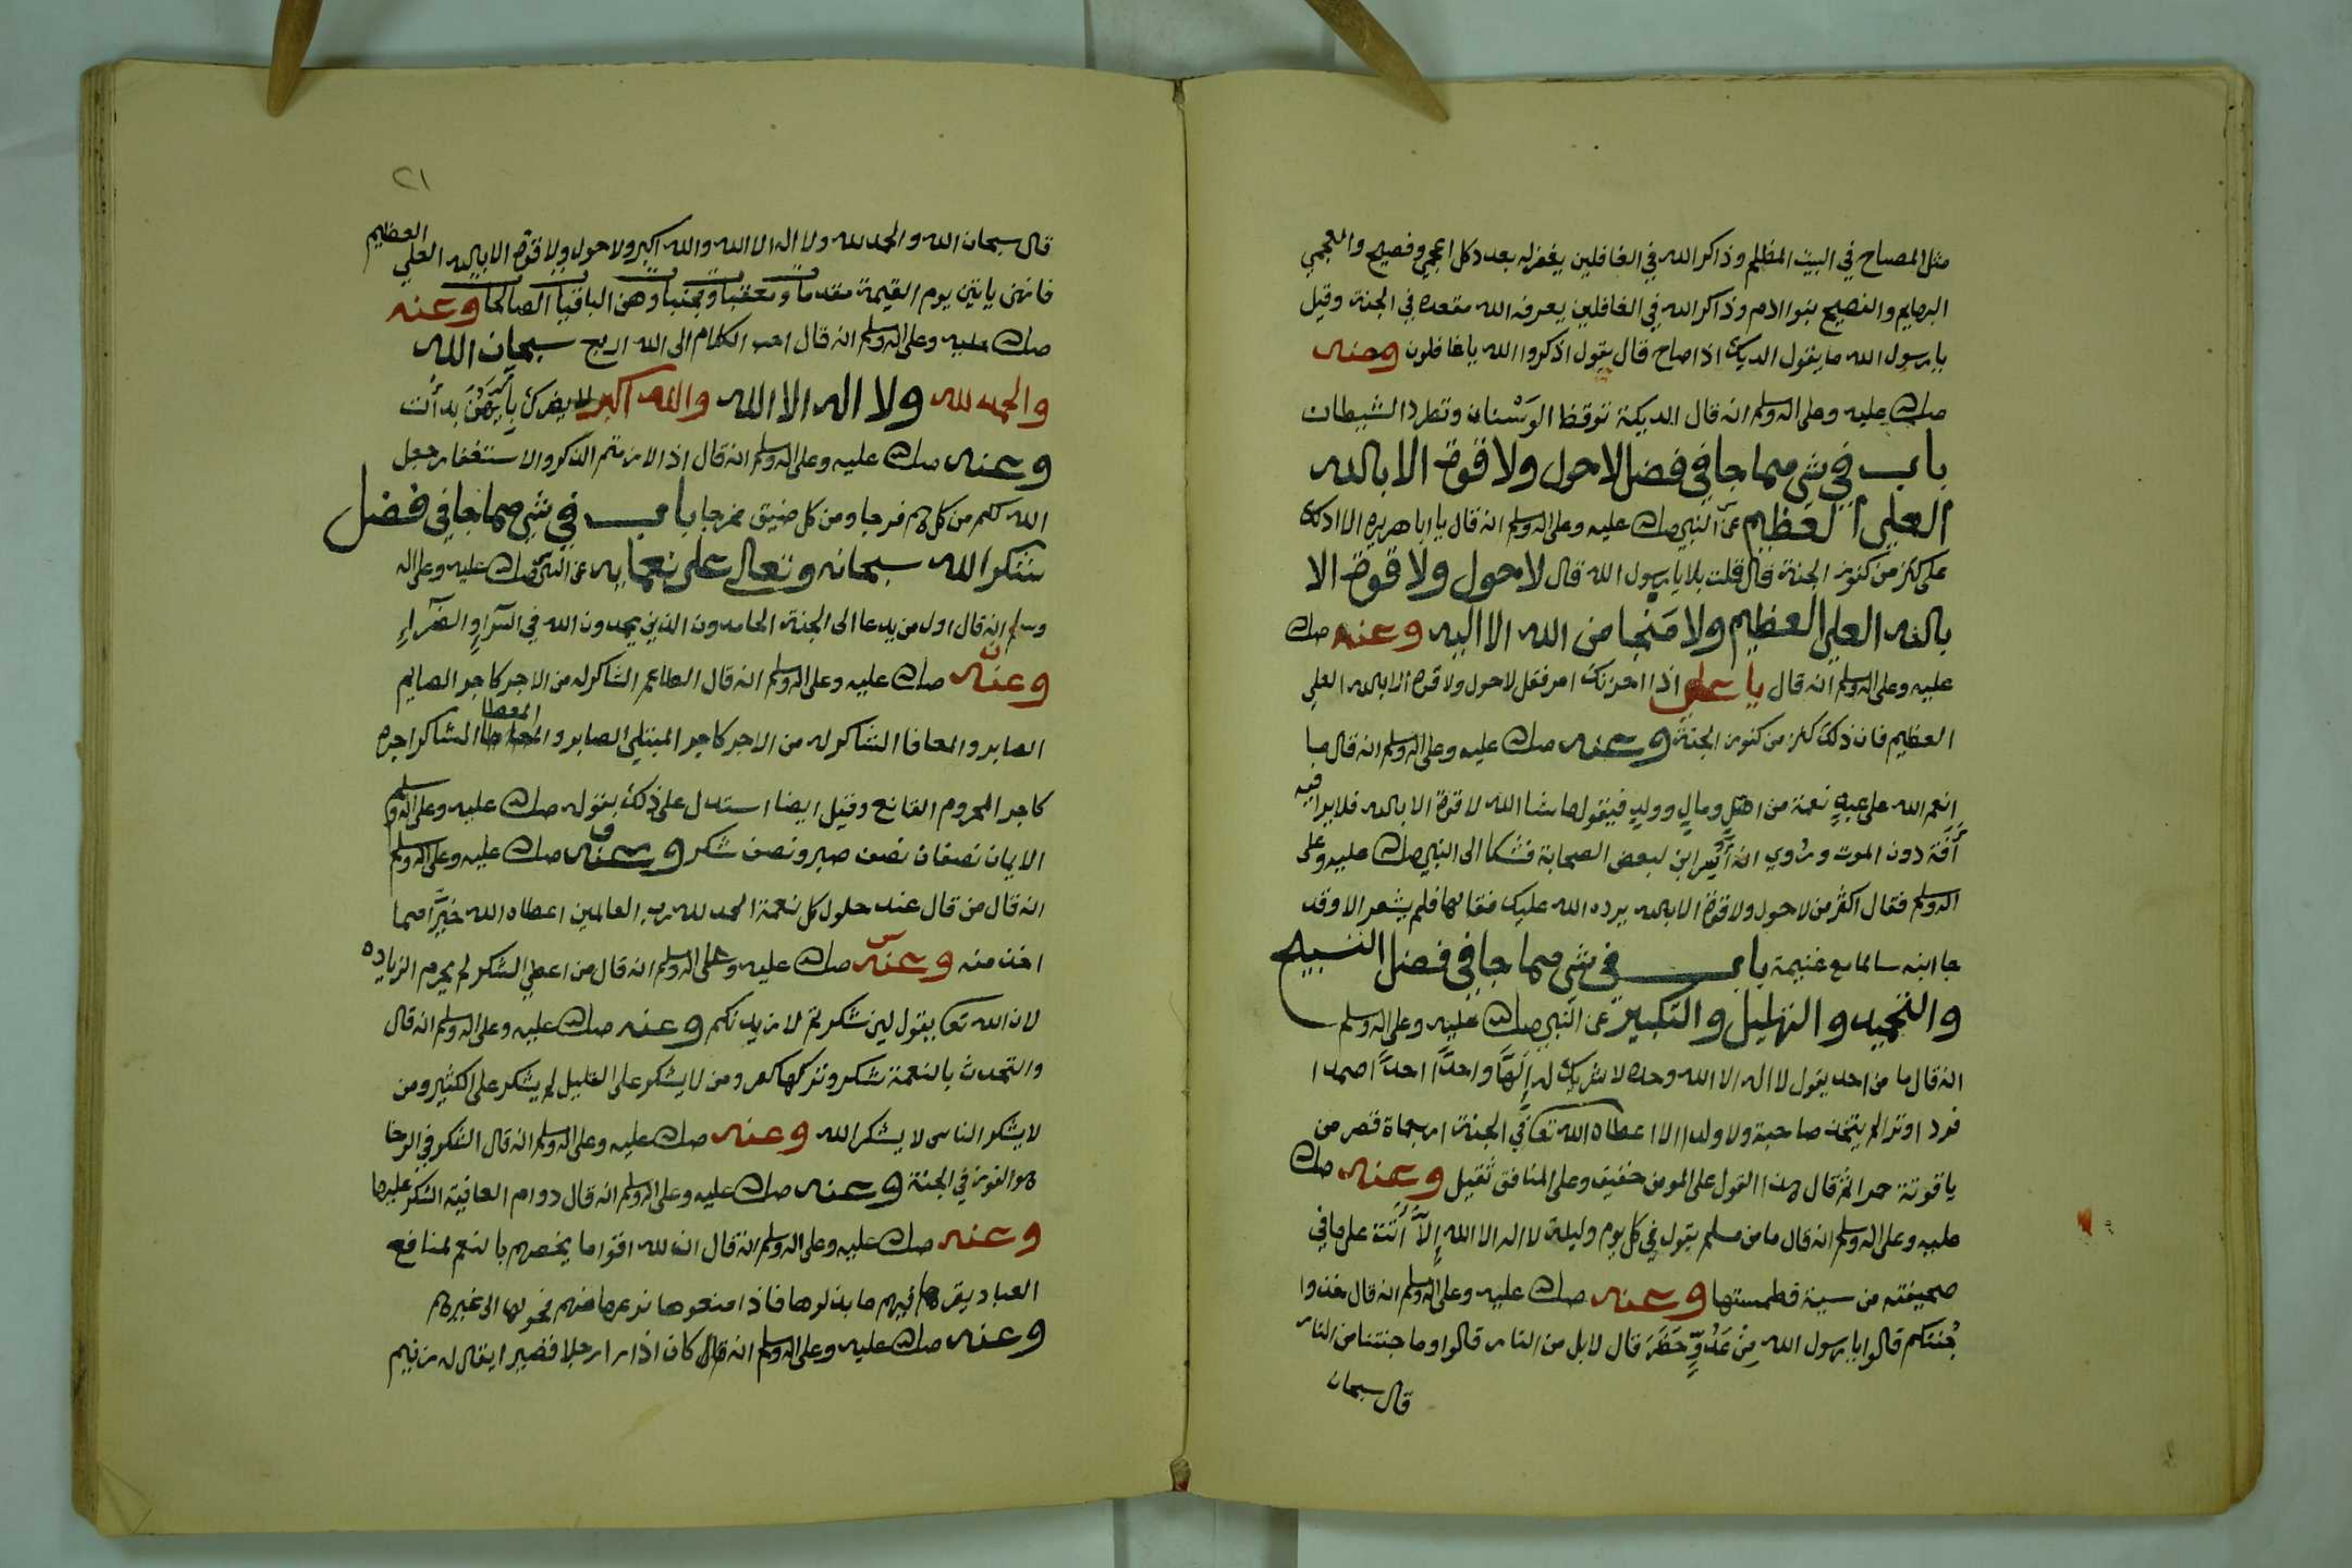 مثل المصباح في البيت المظلم وذاكر الله في الغافلين يغفر له بعدد كل اعجمي وفصيح والعجمي
البهايم والفصيح بنوا ادم وذاكر الله في الغافلين يعرفه الله مقعده في الجنة وقيل
يا رسول الله ما يقول الديك اذا صاح قال يقول اذكروا الله يا غافلون وعنه
صلى الله عليه وعلى اله وسلم انه قال الديكة توقظ الوَسْنان وتطرد الشيطان
باب في شي مما جا في فضل لا حول ولا قوة الا بالله
العلي العظيم عن النبي صلى الله عليه وعلى اله وسلم انه قال يا ابا هريره الا ادلك
على كنز من كنوز الجنة قال قلت بلا يا رسول الله قال لا حول ولا قوة الا
بالله العلي العظيم ولا مَنجا من الله الا اليه وعنه صلى الله
عليه وعلى اله وسلم انه قال يا علي اذا احزنك امر فقل لا حول ولا قوة الا بالله العلي
العظيم فان ذلك كنز من كنوز الجنة وعنه صلى الله عليه وعلى اله وسلم انه قال ما
انعم الله على عبدٍ نعمة من اهلٍ ومالٍ وولدٍ فيقول ما شا الله لا قوة الا بالله فلا يرا فيه
آفة دون الموت وروي انه أُسِر ابن لبعض الصحابة فشكا الى النبي صلى الله عليه وعلى
اله وسلم فقال اكثر من لا حول ولا قوة الا بالله يرده الله عليك فقالها فلم يشعر الا وقد
جا ابنه سالما مع غنيمة باب في شي مما جا في فضل التسبيح
والتحميد والتهليل والتكبير عن النبي صلى الله عليه وعلى اله وسلم
انه قال ما من احد يقول لا اله الا الله وحده لا شريك له إلهًا واحدًا احدًا صمدا
فردا وترا لم يتخذ صاحبة ولا ولدا الا اعطاه الله تعا في الجنة قصر من
ياقوتة حمرا ثم قال هذا القول على المومن خفيف وعلى المنافق ثقيل وعنه صلى الله
عليه وعلى اله وسلم انه قال ما من مسلم يقول في كل يوم وليلة لا اله الا الله إلاَّ أتَت على ما في
صحيفته من سية فطمستها وعنه صلى الله عليه وعلى اله وسلم انه قال خذوا
جُنتكم قالوا يا رسول الله مِنْ عَدُوٍّ حَضَرَ قال لا بل من النار قالوا وما جنتنا من النار
قال سبحان
٢١
قال سبحان الله والحمد لله ولا اله الا الله والله اكبر ولا حول ولا قوة الا بالله العلي العظيم
فانهن ياتين يوم القيمة مقدمات ومعقبات ومجنبات وهن الباقيات الصالحات وعنه
صلى الله عليه وعلى اله وسلم انه قال احب الكلام الى الله اربع سبحان الله
والحمد لله ولا اله الا الله والله اكبر لا يضرك بأيهن بدأت
وعنه صلى الله عليه وعلى اله وسلم انه قال اذا لازمتم الذكر والاستغفار جعل
الله لكم من كل هم فرجا ومن كل ضيق مخرجا باب في شي مما جا في فضل
شكر الله سبحانه وتعالى على نعمايه عن النبي صلى الله عليه وعلى اله
وسلم انه قال اول من يدعا الى الجنة الحامدون الذين يحمدون الله في السَّراءِ والضرَّاءِ
وعنه صلى الله عليه وعلى اله وسلم انه قال الطاعم الشاكر له من الاجر كاجر الصايم
الصابر والمعافا الشاكر له من الاجر كاجر المبتلي الصابر والمعطا الشاكر اجره
كاجر المحروم القانع وقيل ايضا استدل على ذلك بقوله صلى الله عليه وعلى اله وسلم
الايمان نصفان نصف صبر ونصف شكر وعنه صلى الله عليه وعلى اله وسلم
انه قال من قال عند حلول كل نعمة الحمد لله رب العالمين اعطاه الله خيرًا مما
اخذ منه وعنه صلى الله عليه وعلى اله وسلم انه قال من اعطي الشكر لم يحرم الزياده
لان الله تعا يقول لين شكرتم لازيدنكم وعنه صلى الله عليه وعلى اله وسلم انه قال
والتحدث بالنعمة شكر وتركها كفر ومن لا يشكر على القليل لم يشكر على الكثير ومن
لا يشكر الناس لا يشكر الله وعنه صلى الله عليه وعلى اله وسلم انه قال الشكر في الرخا
هو الفوز في الجنة وعنه صلى الله عليه وعلى اله وسلم انه قال دوام العافية الشكر عليها
وعنه صلى الله عليه وعلى اله وسلم انه قال ان لله اقواما يخصهم بالنعم لمنافع
العباد يقرها فيهم ما بذلوها فاذا منعوها نزعها منهم فحولها الى غيرهم
وعنه صلى الله عليه وعلى اله وسلم انه قال كان اذا را رجلا قصيرا يقال له زنيم